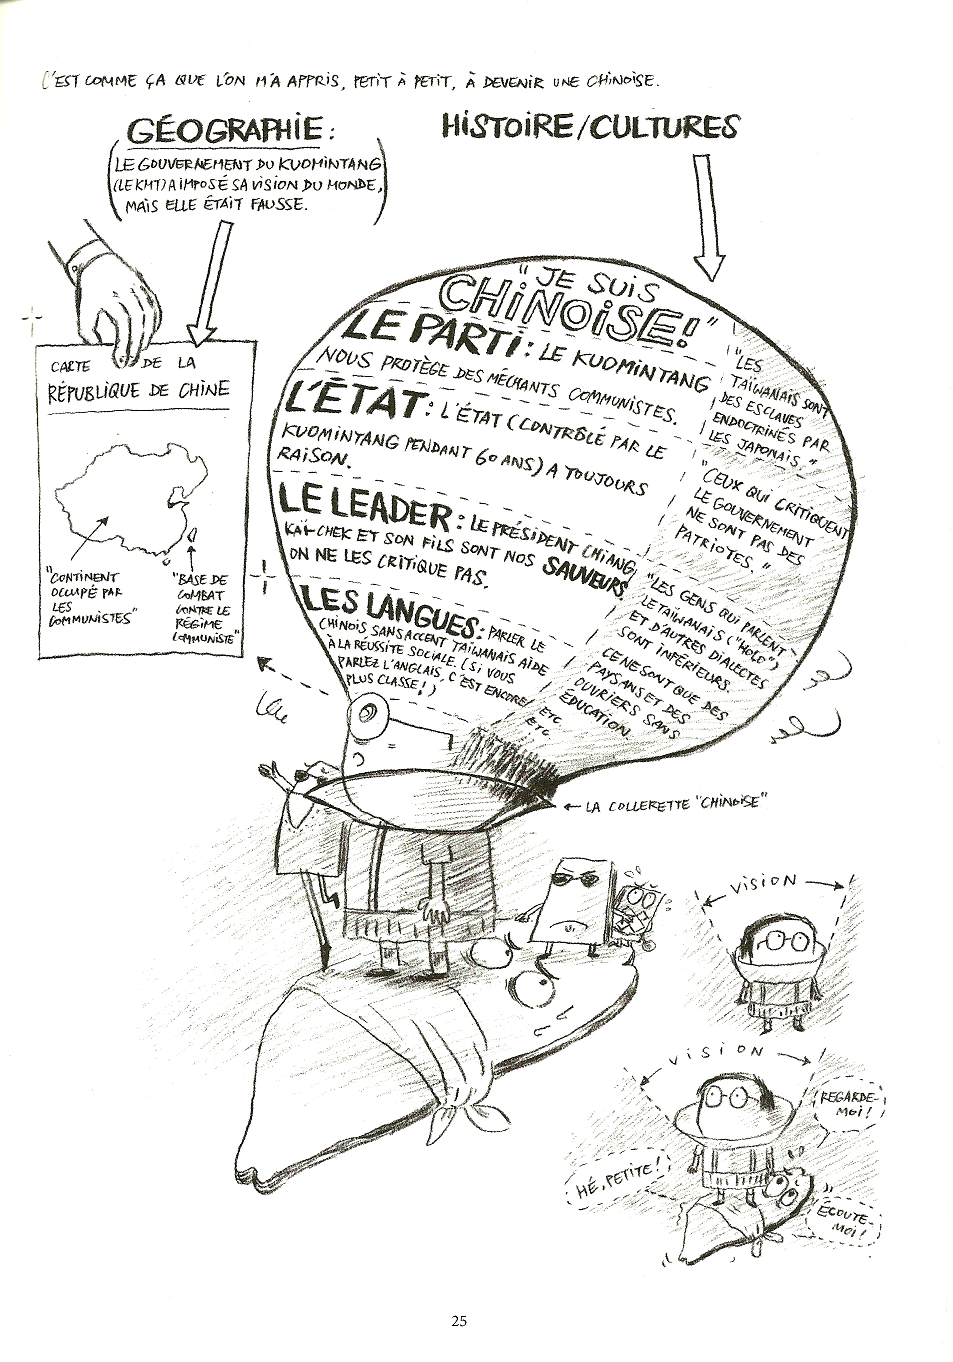 C'EST COMME ÇA QUE L'ON M'A APPRIS, PETIT À PETIT, À DEVENIR UNE CHINOISE.
GÉOGRAPHIE :
(LE GOUVERNEMENT DU KUOMINTANG
(LE KMT) A IMPOSÉ SA VISION DU MONDE,
MAIS ELLE ÉTAIT FAUSSE.)
HISTOIRE/CULTURES
CARTE DE LA
RÉPUBLIQUE DE CHINE
"CONTINENT
OCCUPÉ PAR
LES
COMMUNISTES"
"BASE DE
COMBAT
CONTRE LE
RÉGIME
COMMUNISTE"
"JE SUIS
CHINOISE!"
LE PARTI : LE KUOMINTANG
NOUS PROTÈGE DES MÉCHANTS COMMUNISTES.
L'ÉTAT : L'ÉTAT (CONTRÔLÉ PAR LE
KUOMINTANG PENDANT 60 ANS) A TOUJOURS
RAISON.
LE LEADER : LE PRÉSIDENT CHIANG
KAÏ-CHEK ET SON FILS SONT NOS SAUVEURS,
ON NE LES CRITIQUE PAS.
LES LANGUES : PARLER LE
CHINOIS SANS ACCENT TAÏWANAIS AIDE
À LA RÉUSSITE SOCIALE. (SI VOUS
PARLEZ L'ANGLAIS, C'EST ENCORE
PLUS CLASSE!)
"LES
TAÏWANAIS SONT
DES ESCLAVES
ENDOCTRINÉS PAR
LES JAPONAIS."
"CEUX QUI CRITIQUENT
LE GOUVERNEMENT
NE SONT PAS DES
PATRIOTES."
"LES GENS QUI PARLENT
LE TAÏWANAIS ("HOLO")
ET D'AUTRES DIALECTES
SONT INFÉRIEURS.
CE NE SONT QUE DES
PAYSANS ET DES
OUVRIERS SANS
ÉDUCATION.
ETC
ETC
← LA COLLERETTE "CHINOISE"
VISION
VISION
REGARDE-
MOI !
HÉ, PETITE !
ÉCOUTE-
MOI !
25